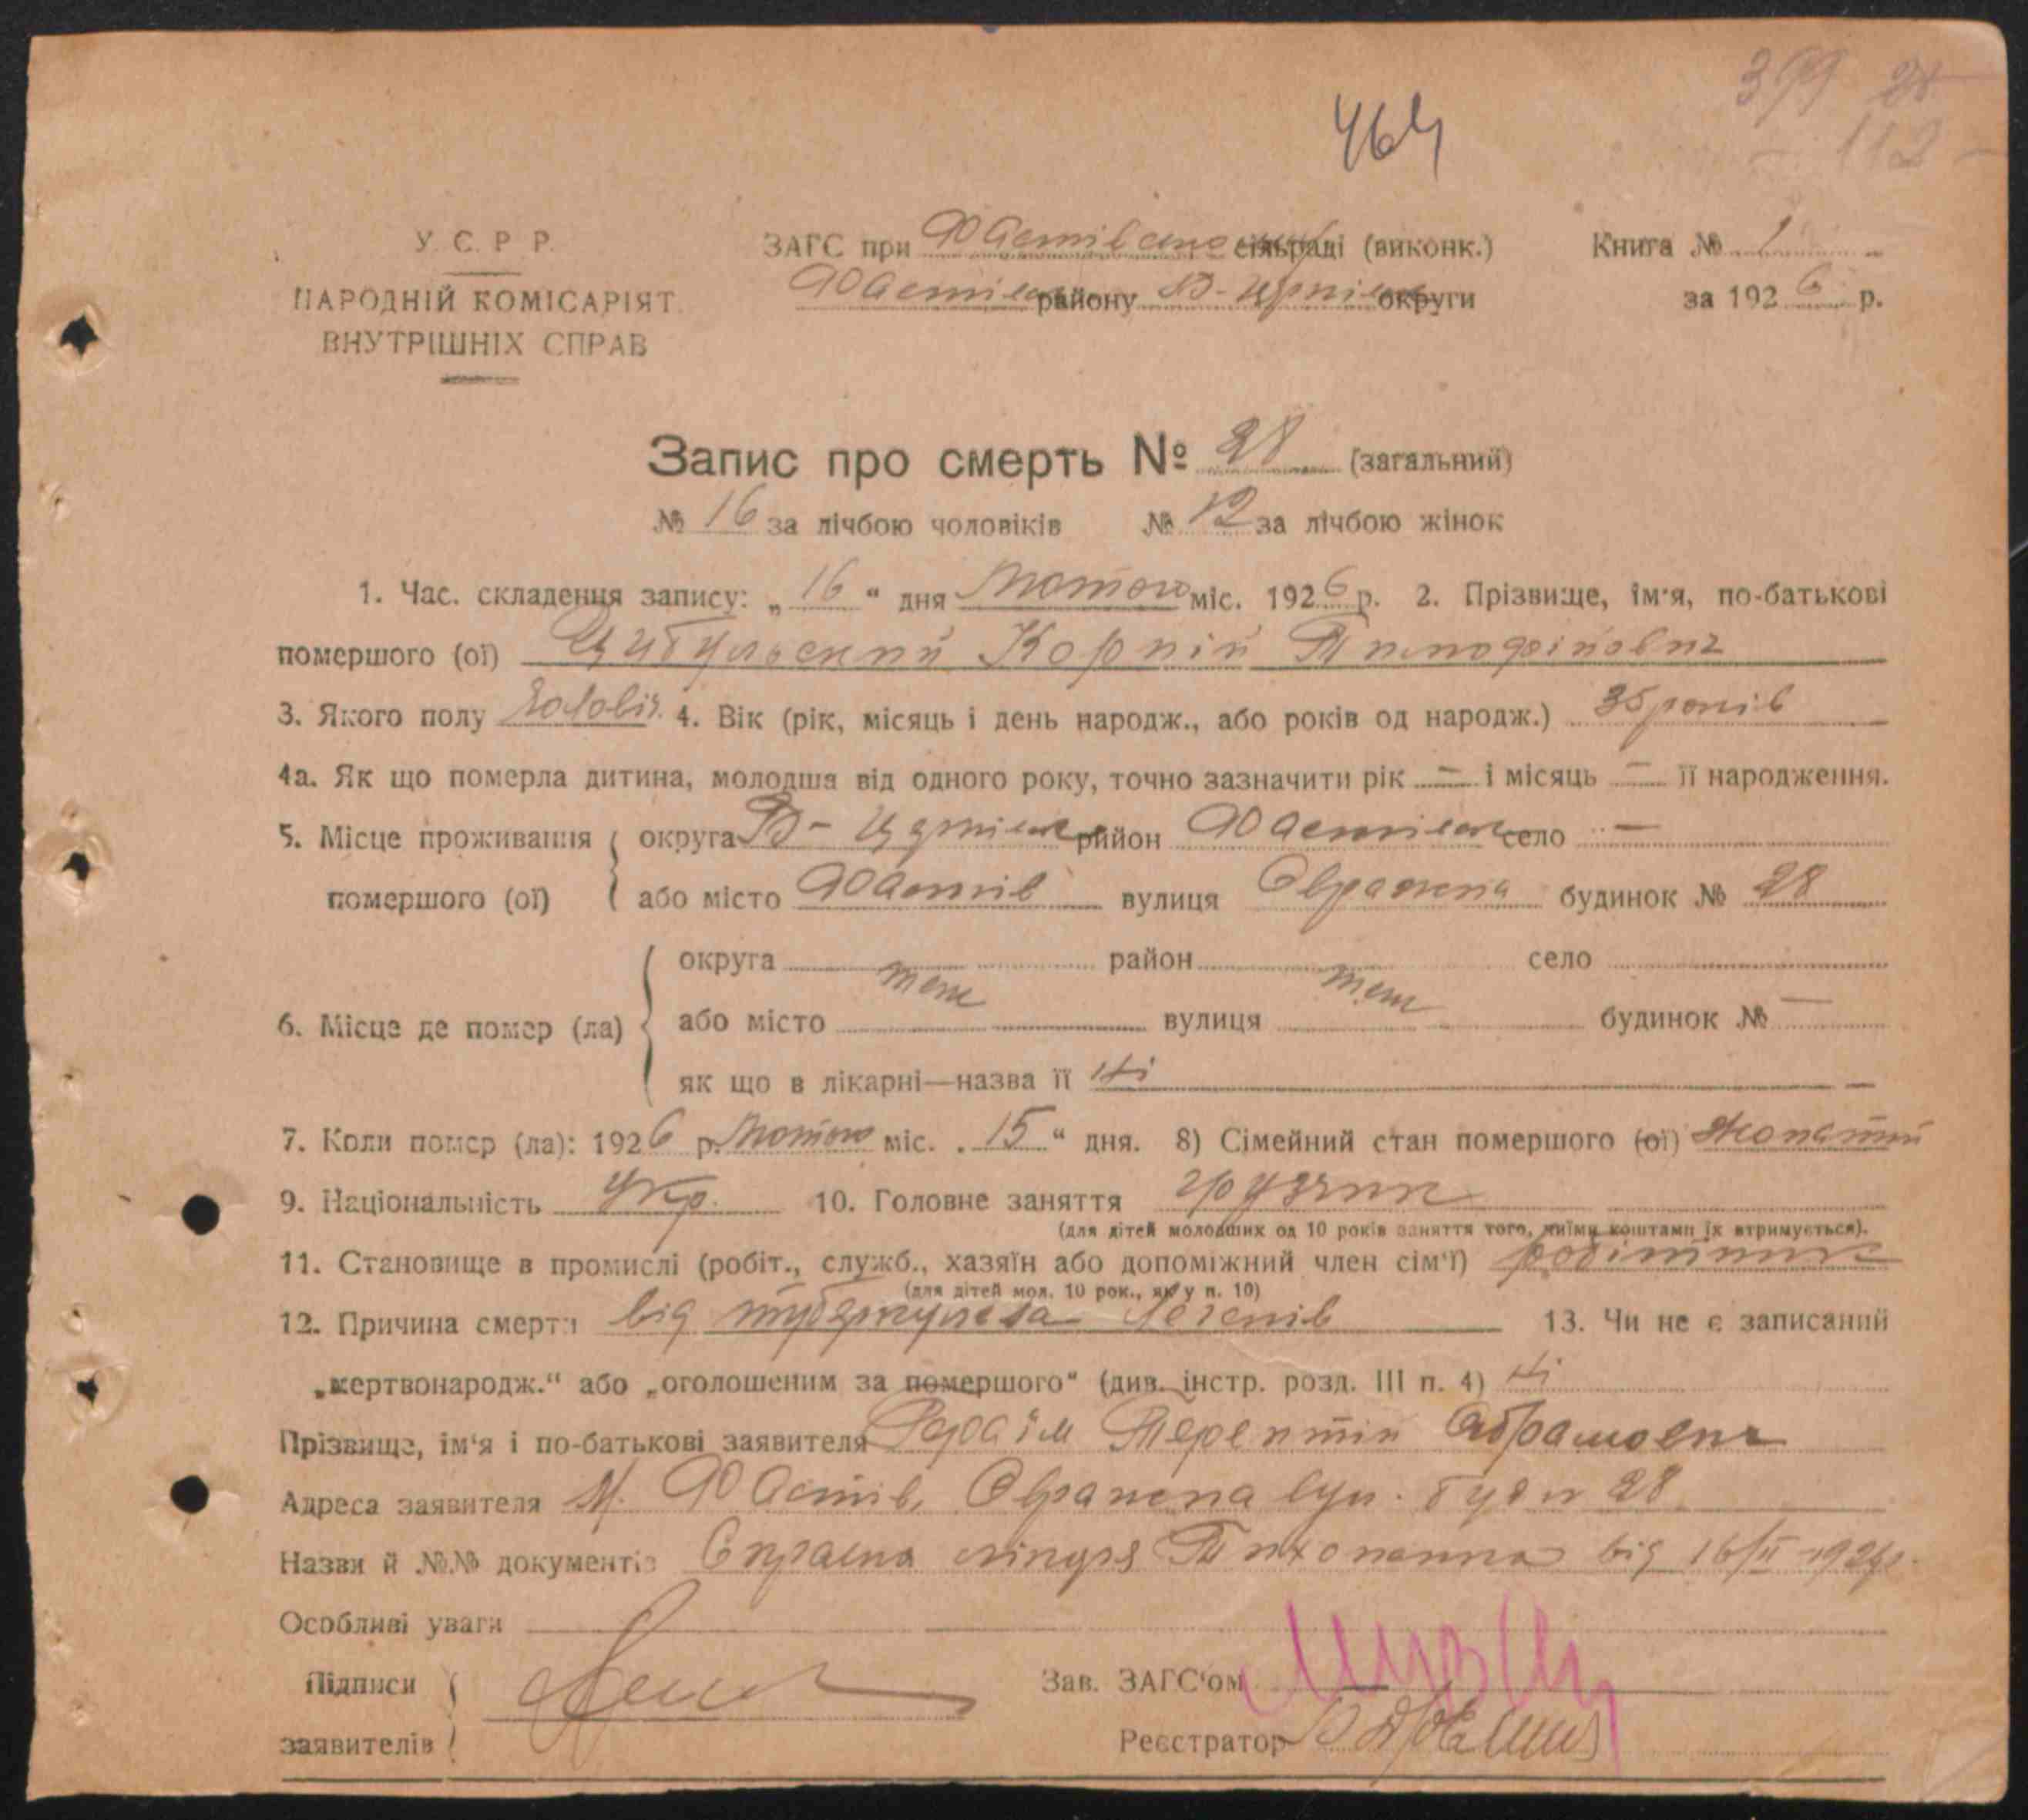 399 28
112
464
У. С. Р. Р. ЗАГС при Фастівському сільраді (виконк.) Книга № 1
НАРОДНІЙ КОМІСАРІЯТ Фастівськ району Б-Церківськ округи за 1926 р.
ВНУТРІШНІХ СПРАВ
Запис про смерть № 28 (загальний)
№ 16 за лічбою чоловіків № 12 за лічбою жінок
1. Час. складення запису: „16“ дня Лютого міс. 1926 р. 2. Прізвище, ім'я, по-батькові
помершого (ої) Цибульский Корній Тимофійович
3. Якого полу Чоловіч. 4. Вік (рік, місяць і день народж., або років од народж.) 35 років
4а. Як що померла дитина, молодша від одного року, точно зазначити рік — і місяць — її народження.
5. Місце проживання округа Б-Церківськ район Фастівськ село —
помершого (ої) або місто Фастів вулиця будинок № 28
округа район село
6. Місце де помер (ла) або місто теж вулиця теж будинок № —
як що в лікарні—назва її Ні —
7. Коли помер (ла): 1926 р. Лютого міс. „15“ дня. 8) Сімейний стан помершого (ої) Жонатий
9. Національність Укр. 10. Головне заняття грузчик
(для дітей молодших од 10 років заняття того, чиїми коштами їх втримується).
11. Становище в промислі (робіт., служб., хазяїн або допоміжний член сім'ї) робітник
(для дітей мол. 10 рок., як у п. 10)
12. Причина смерти від туберкульоза легенів 13. Чи не є записаний
„жертвонародж.“ або „оголошеним за помершого“ (див. інстр. розд. III п. 4) Ні
Прізвище, ім'я і по-батькові заявителя Терентій Абрамович
Адреса заявителя М. Фастів, вул. буд № 28
Назви й №№ документів Справка лікаря Тихонанна від 16/II 192
Особливі уваги
Підписи Зав. ЗАГС'ом
заявителів Реєстратор